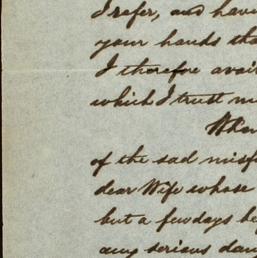 I refer, and have
your hands tha
I therefore avai
which I trust m
When
of the sad misf
dear Wife whose
but a few days be
any serious dan